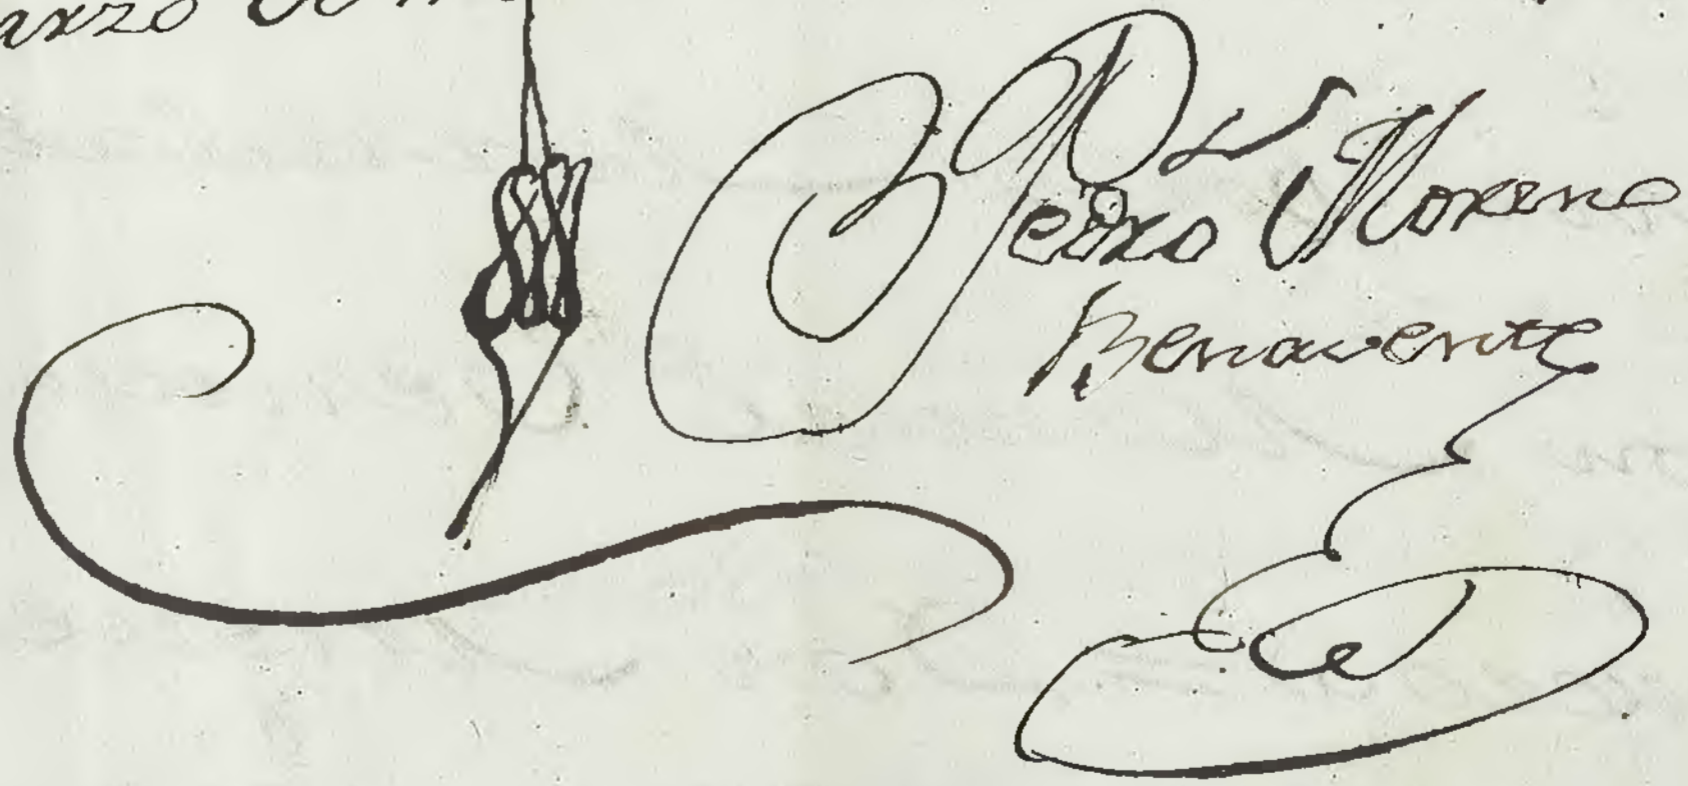 Marzo
Pedro Moreno
Benavente